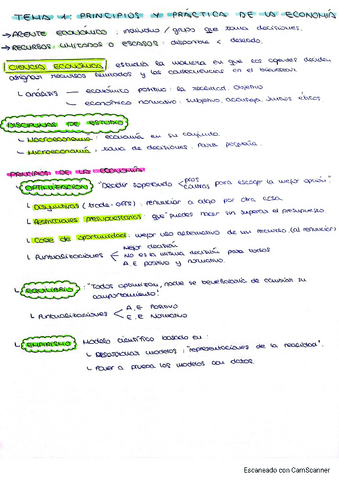 TEMA 1: PRINCIPIOS Y PRÁCTICA DE LA ECONOMÍA
→ AGENTE ECONÓMICO: individuo / grupo que toma decisiones.
→ RECURSOS LIMITADOS O ESCASOS: disponible < deseado.
CIENCIA ECONÓMICA: estudia la manera en que los agentes deciden
asignar recursos limitados y las consecuencias en el bienestar.
↳ análisis — económico positivo: la realidad. Objetivo
— económico normativo: subjetivo, aconseja. Juicios éticos
DISCIPLINAS DE ESTUDIO
↳ Macroeconomía: economía en su conjunto.
↳ Microeconomía: toma de decisiones. Parte pequeña.
PRINCIPIOS DE LA ECONOMÍA
↳ OPTIMIZACIÓN: "Decidir sopesando pros
contras para escoger la mejor opción".
↳ Disyuntivas (trade-offs): renunciar a algo por otra cosa.
↳ Restricciones presupuestarias: qué puedes hacer sin superar el presupuesto.
↳ Coste de oportunidad: mejor uso alternativo de un recurso (al renunciar)
↳ Puntualizaciones
Mejor decisión
No es la misma decisión para todos
A.E positivo y normativo.
↳ EQUILIBRIO: "Todos optimizan, nadie se beneficiaría de cambiar su
comportamiento".
↳ Puntualizaciones
A.E Positivo
E.E Normativo
↳ EMPIRISMO: Modelo científico basado en:
↳ Desarrollar modelos: "representaciones de la realidad".
↳ Poner a prueba los modelos con datos.
Escaneado con CamScanner